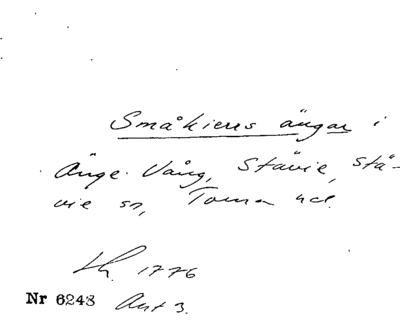 Småkierrs ängar i
Änge Vång, Stävie, Stä-
vie sn, Torna hd.
Lh. 1776
Nr 6243 Akt 3.